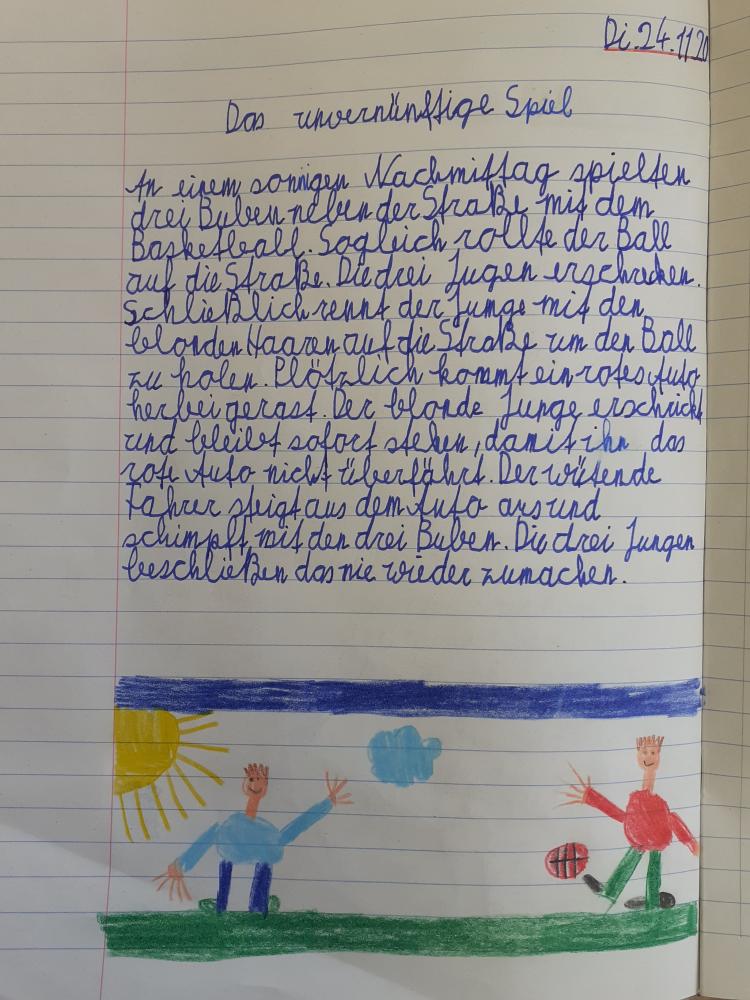 Di. 24.11 20
Das unvernünftige Spiel
An einem sonnigen Nachmittag spielten
drei Buben neben der Straße mit dem
Basketball. Sogleich rollte der Ball
auf die Straße. Die drei Jugen erschrecken.
Schließlich rennt der Junge mit den
blonden Haaren auf die Straße um den Ball
zu holen. Plötzlich kommt ein rotes Auto
herbei gerast. Der blonde Junge erschrickt
und bleibt sofort stehen, damit ihn das
rote Auto nicht überfährt. Der wütende
Fahrer steigt aus dem Auto aus und
schimpft mit den drei Buben. Die drei Jungen
beschließen das nie wieder zumachen.